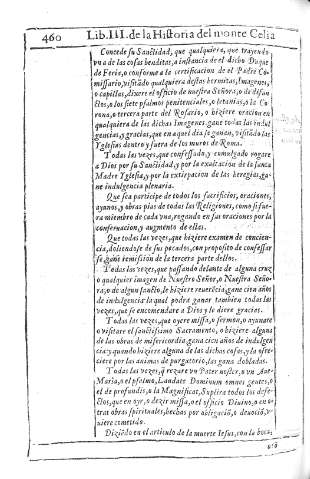 460 Lib.III.de la Historia del monte Celia
Concede su Sanctidad, que qualquiera, que trayendo
vna de las cosas benditas, a instancia de el dicho Duque
de Feria, o conforme a la certificacion de el Padre Co-
missario, visitãdo qualquiera destas hermitas, Imagenes,
o capillas, dixere el officio de nuestra Señora, o de difun-
ctos, o los siete psalmos penitenciales, o letanias, o la Co
rona, o tercera parte del Rosario, o hiziere oracion en
qualquiera de las dichas Imagenes gane todas las indul
gencias, y gracias, que en aquel dia se ganan, visitãdo las
Yglesias dentro y fuera de los muros de Roma.
Todas las vezes, que confessado, y comulgado rogare
a Dios por su Sanctidad, y por la exaltacion de la sancta
Madre Yglesia, y por la extirpacion de las heregias, ga-
ne indulgencia plenaria.
Que sea participe de todos los sacrificios, oraciones,
ayunos, y obras pias de todas las Religiones, como si fue-
ra miembro de cada vna, rogando en sus oraciones por la
conseruacion, y augmento de ellas.
Que todas las vezes, que hiziere examen de concien-
cia, doliendose de sus pecados, con proposito de confessar
se gane remission de la tercera parte dellos.
Todas las vezes, que passando delante de alguna cruz
o qualquier imagen de Nuestro Señor, o Nuestra Seño-
ra, o de algun sancto, le hiziere reuerẽcia, gane cien años
de indulgencia la qual podra ganar tambien todas las
vezes, que se encomendare a Dios y le diere gracias.
Todas las vezes, que oyere missa, o sermon, o ayunare
o visitare el sanctissimo Sacramento, o hiziere alguna
de las obras de misericordia, gane cien años de indulgen
cia: y quando hiziere alguna de las dichas cosas, y la ofre-
ciere por las animas de purgatorio, las gana dobladas.
Todas las vezes, q̃ rezare vn Pater noster, vn Aue-
Maria, o el psalmo, Laudate Dominum omnes gentes, o
el de profundis, o la Magnificat, Suplira todos los defe-
ctos, que en oyr, o dezir missa, o el officio Diuino, o en o-
tras obras spirituales, hechas por obligaciõ, o deuociõ, v-
uiere cometido.
Diziẽdo en el articulo de la muerte Iesus, con la boca,